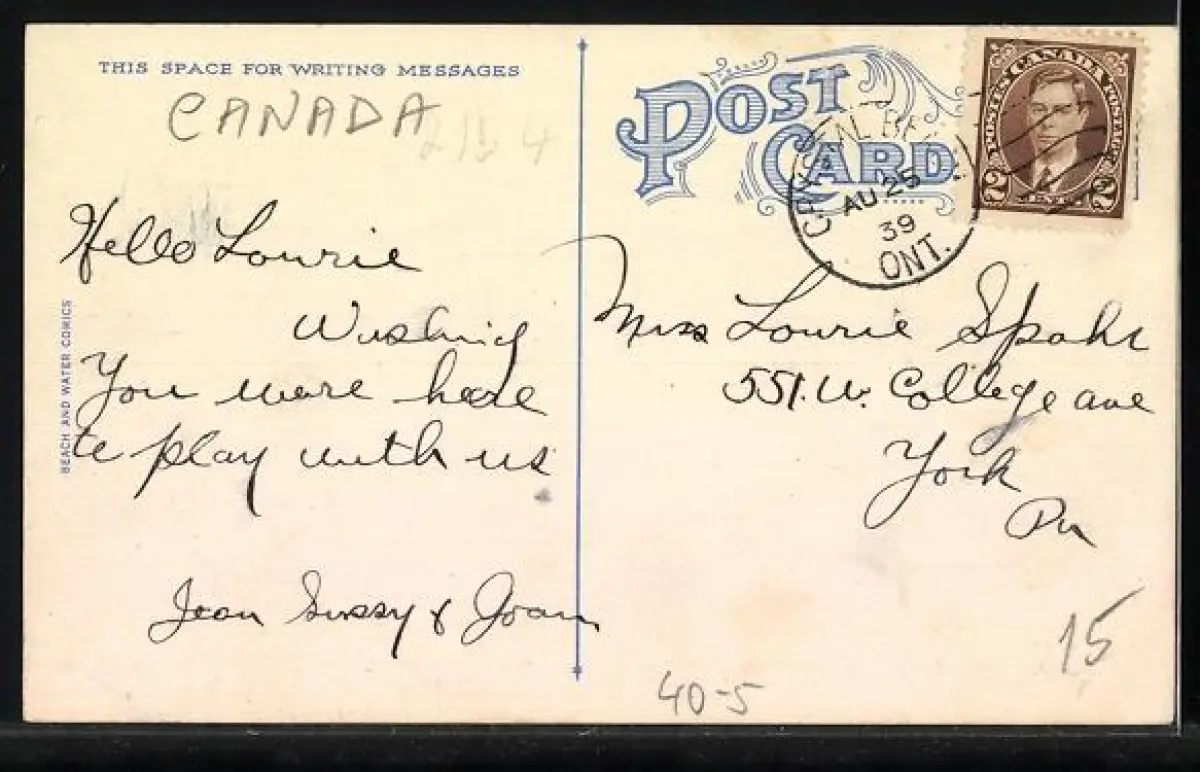 THIS SPACE FOR WRITING MESSAGES
CANADA
Hello Lourie
Wishing
You were here
to play with us
Jean Sussy & Joan
BEACH AND WATER COMICS
POST
CARD
CRYSTAL BEACH
AU 25
39
ONT.
POSTES CANADA POSTAGE
2 CENTS 2
Miss Lourie Spahr
551. W. College ave
York
Pa
15
40-5